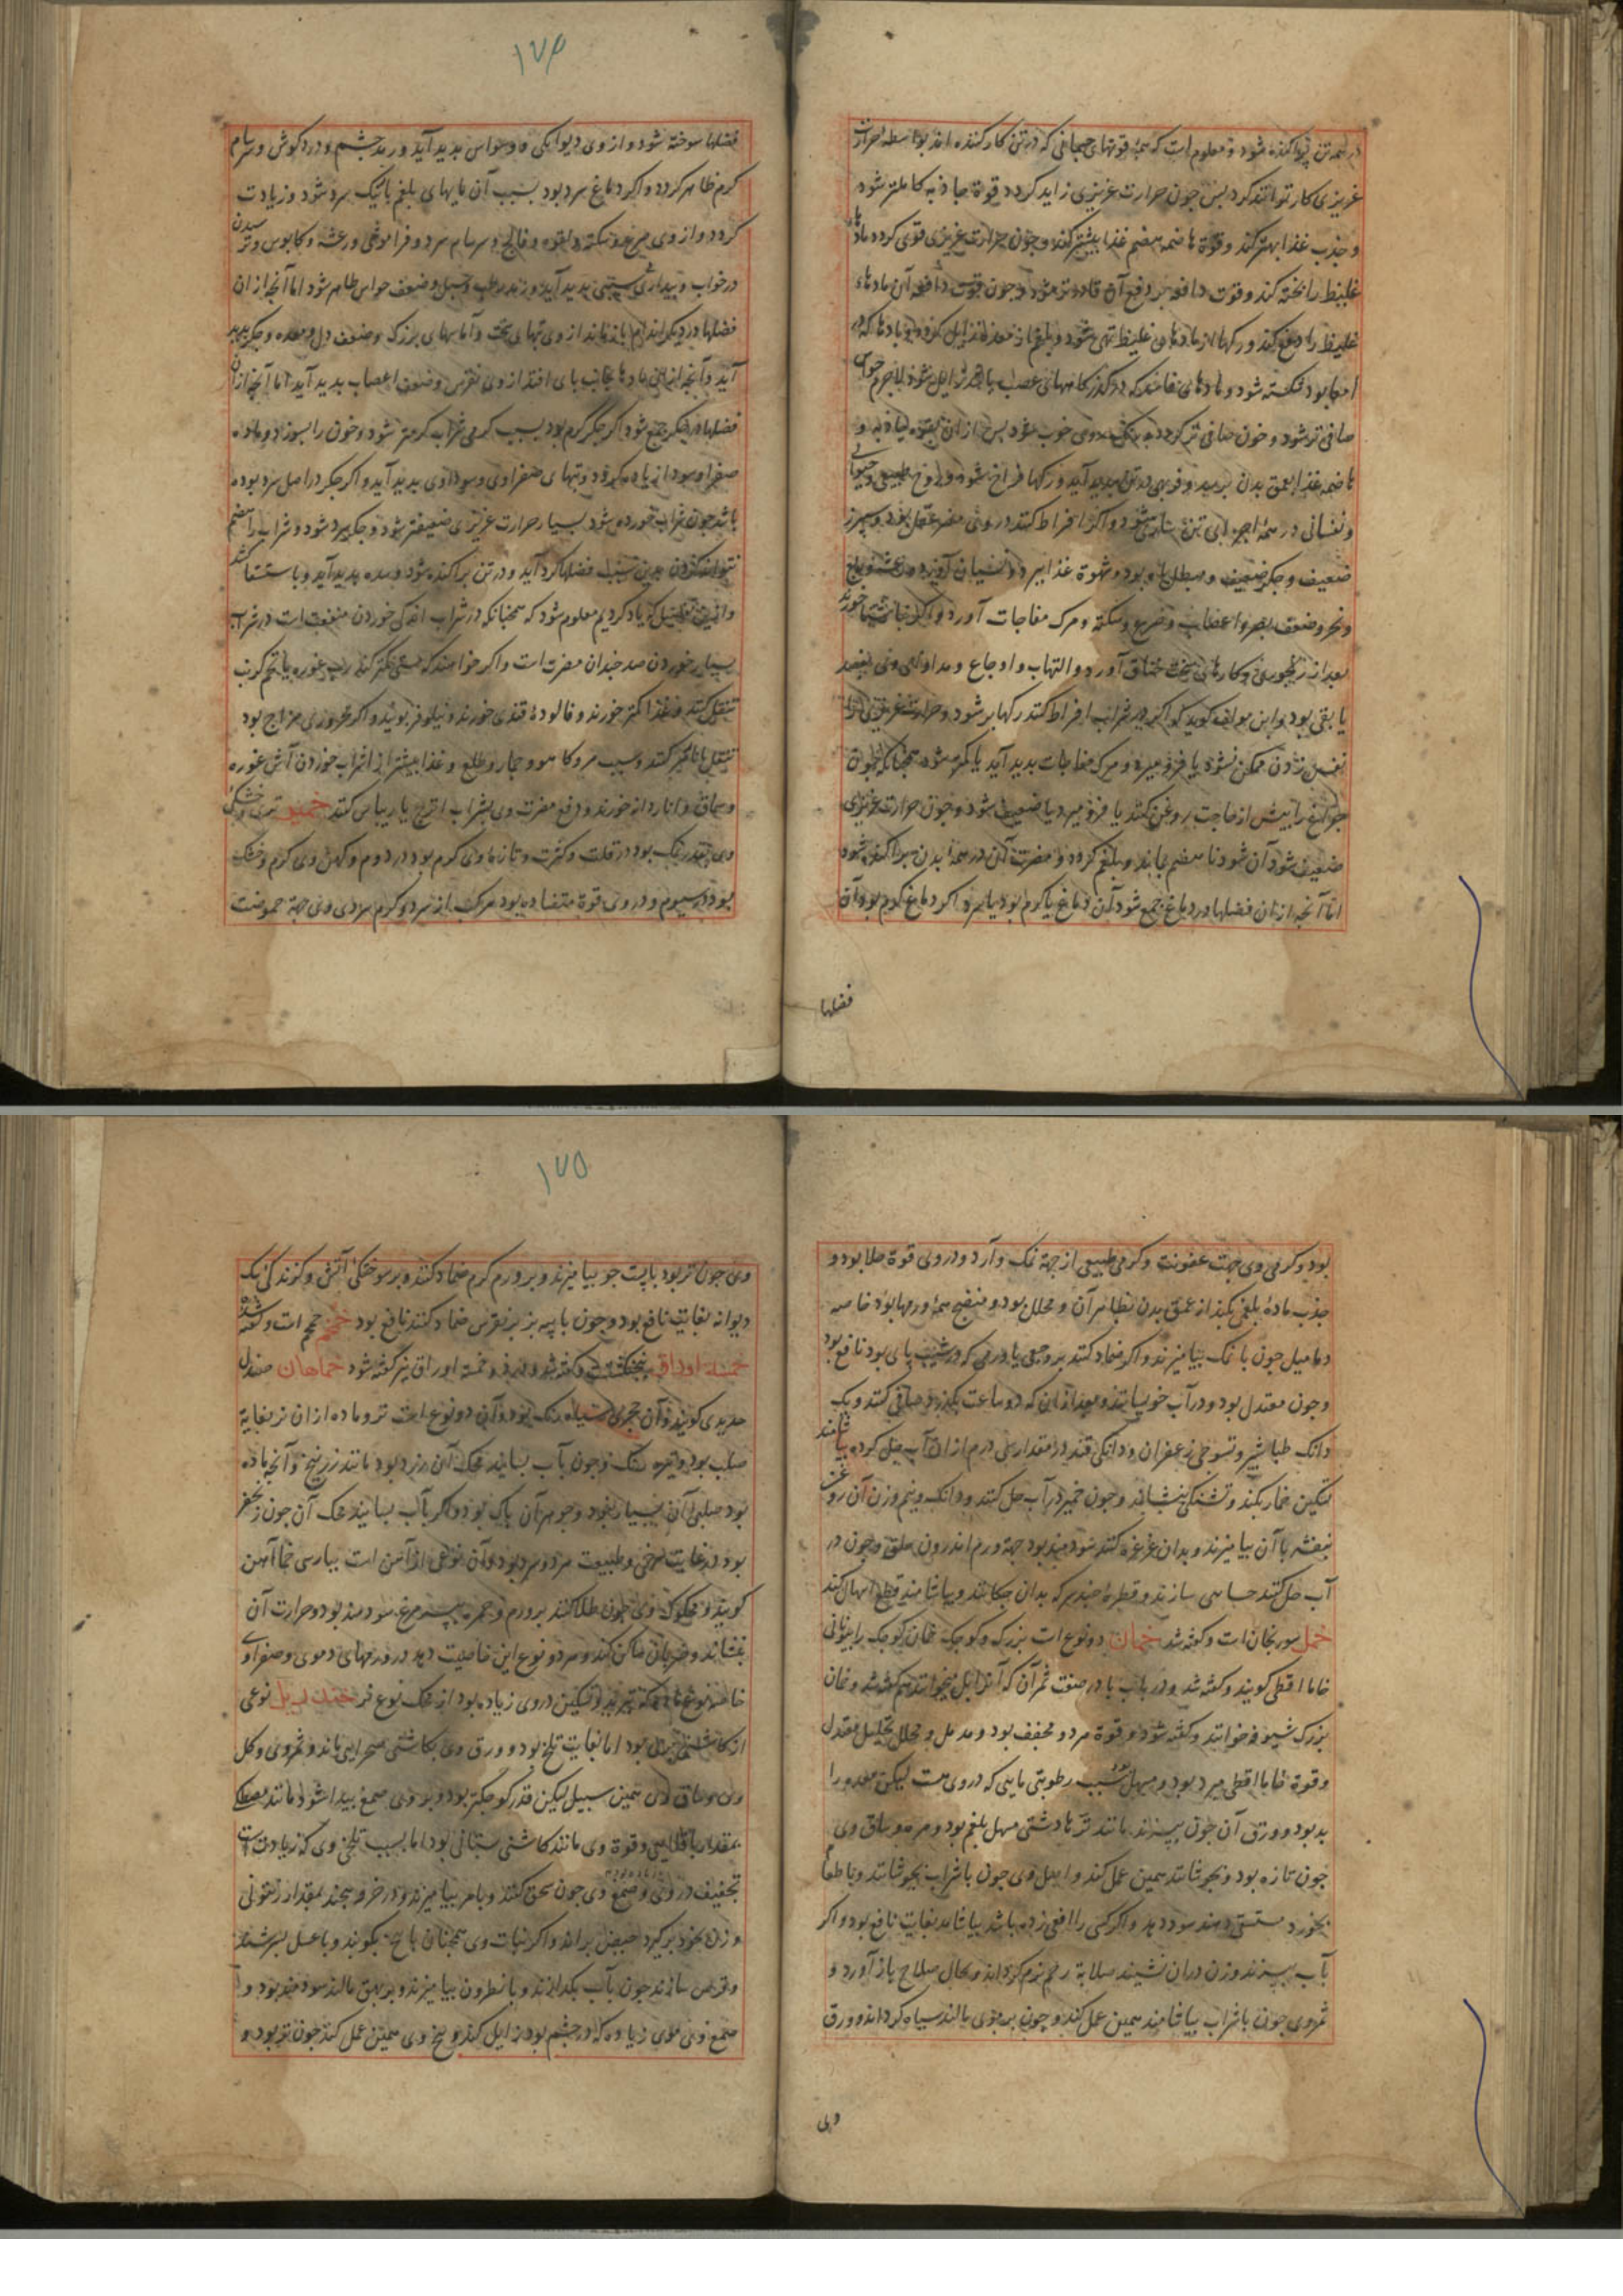 در همه تن پراکنده شود و معلوم است که همه قوتهای جسمانی که در تن کارکننده اند بواسطه حرارت
غریزی کار توانند کرد بس جون حرارت غریزی زاید کردد قوة جاذبه کاملتر شود
و جذب غذا بهتر کند و قوة هاضمه هضم غذا بیشتر کند و جون حرارت غریزی قوی کردد مادهاء
غلیظ را پخته کند و قوت دافعه بر دفع آن قادرتر شود و جون قوت دافعه آن مادهاء
غلیظ را دفع کند و رکها از مادهای غلیظ تهی شود و بلغم از معده زایل کردد و بادها که در
امعا بود شکسته شود و مادهای که در کذرکاههای عصب باشد زایل شود لاجرم حواس
صافی تر شود و خون صافی تر کردد و رنک روی خوب شود پس از آن بقوة جاذبه و
هاضمه غذا بعمق بدن برسد و فربهی در تن بدید آید و رکها فراخ شود و روح طبیعی و حیوانی
و نفسانی در همه اجزای تن شود و اکر افراط کنند در وی مضر عقل بود و سپرز
ضعیف و جکر ضعیف و بود و شهوة غذا ببرد و نسیان آورد و رعشه و فلج
و ضعف بصر و اعصاب و صرع و سکته و مرک مفاجات آورد و اکر ناشتا خورند
بعد از رنجوری و کارهای سخت خناق آورد و التهاب و اوجاع و مداوای وی بفصد
یا بقی بود و این مولف کوید که اکر در شراب افراط کنند رکها پر شود و حرارت غریزی را
نفس زدن ممکن نشود یا فرو میرد و مرک مفاجات بدید آید یا کم شود همجنانکه جون
جراغ را بیش از حاجت روغن کنند یا فرو میرد یا ضعیف شود و جون حرارت غریزی
ضعیف شود آن شود نا هضم بماند و بلغم کردد و مضرت آن در همه بدن پراکنده شود
اما آنجه از آن فضلها در دماغ جمع شود آن دماغ یا کرم بود یا سرد اکر دماغ کرم بود آن
فضلها
۱۷۴
فضلها سوخته شود و از وی دیوانکی و وسواس بدید آید و رمد جشم و درد کوش و سرسام
کرم ظاهر کردد و اکر دماغ سرد بود بسبب آن مایهای بلغم باریک سرد شود و زیادت
کردد و از وی صرع و سکته و لقوه و فالج و سرسام سرد و فراموشی و رعشه و کابوس و ترسیدن
در خواب و بیداری و سستی بدید آید و رمد رطب و سبل و ضعف حواس ظاهر شود اما آنجه از ان
فضلها در دیکر اندام باز ماند از وی تبهای سخت و آماسهای بزرک و ضعف دل و معده و جکر بدید
آید و آنجه از این مادها بجانب بای افتد از وی نقرس و ضعف اعصاب بدید آید اما آنجه از آن
فضلها در جکر جمع شود اکر جکر کرم بود بسبب کرمی شراب کرمتر شود و خون را بسوزد و ماده
صفرا و سودا زیاده کردد و تبهای صفراوی و سوداوی بدید آید و اکر جکر در اصل سرد بوده
باشد جون شراب خورده شود بسیار حرارت غریزی ضعیفتر شود و جکر سرد شود و شراب را هضم
نتواند کردن بدین سبب فضلها کرد آید و در تن پراکنده شود و سده بدید آید و باستسقا کشد
و ازین تفصیل که یاد کردیم معلوم شود که همجنانکه در شراب اندکی خوردن منفعت است در شراب
بسیار خوردن صد جندان مضرت است و اکر خواهند که مستی کمتر کند رب غوره یا تخم کرنب
تنقل کنند و غذا کمتر خورند و فالوده قندی خورند و نیلوفر بویند و اکر محروری مزاج بود
تنقل بانار کنند و سیب مز و کاهو و جمار و طلع و غذا بیشتر از شراب خوردن آش غوره
و سماق و اناردانه خورند و دفع مضرت وی بشراب اترج یا ریباس کنند خمیر تری و خشکی
وی بقدر نمک بود در قلت و کثرت و تازه وی کرم بود در دوم و کهن وی کرم و خشک
بود در سیوم و در وی قوة متضاده بود مرکب از سرد و کرم سردی وی جهة حموضت
بود و کرمی وی جهت عفونت و کرمی طبیعی از جهة نمک و آرد و در وی قوة جلا بود و
جذب مادهٔ بلغمی بکند از عمق بدن بظاهر آن و محلل بود و منضج همه ورمها بود خاصه
دمامیل جون با نمک بیامیزند و اکر ضماد کنند بر وجعی یا ورمی که در شیب پای بود نافع بود
و جون معتدل بود و در آب خویسانند و بعد از ان که دو ساعت بکذرد صافی کنند و یک
دانک طباشیر و تسوجی زعفران و دانکی قند در مقدار سی درم از ان آب حل کرده بیاشامند
تسکین خمار بکند و تشنکی بنشاند و جون خمیر در آب حل کنند و دانک و نیم وزن آن روغن
بنفشه با آن بیامیزند و بدان غرغره کنند سودمند بود جهة ورم اندرون حلق و جون در
آب حل کنند حسایی سازند و قطرهٔ جند سرکه بدان جکانند و بیاشامند قطع اسهال کند
خمل سورنجان است و کفته شد خمان دو نوع است بزرک و کوجک خمان کوجک را بیونانی
خاما اقطی کویند و کفته شد و در باب با در صفت ثمر آن که آنرا بل خوانند هم کفته شد و خمان
بزرک شبوقه خوانند و کفته شود و قوة هر دو مجفف بود و مدمل و محلل تحلیل معتدل
و قوة خاما اقطی مبرد بود و مسهل بود بسبب رطوبتی مایی که در وی هست لیکن معده را
بد بود و ورق آن جون ببزند مانند ترهاء دشتی مسهل بلغم بود و مره و ساق وی
جون تازه بود و بجوشانند همین عمل کند و اصل وی جون با شراب بجوشانند و با طعام
بخورد مستسقی دهند سود دهد و اکر کسی را افعی زده باشد بیاشامد بغایت نافع بود و اکر
بآب ببزند و زن در ان نشیند صلابة رحم نرم کرداند و بحال صلاح باز آورد و
ثمر وی جون با شراب بیاشامند همین عمل کند و جون بر موی مالند سیاه کرداند و ورق
وی
۱۷۵
وی جون تر بود با پست جو بیامیزند و بر ورم کرم ضماد کنند و بر سوختکی آتش و کزندکی سک
دیوانه بغایت نافع بود و جون با پیه بز بر نقرس ضماد کنند نافع بود خمخم حمحم است و کفته شد
خمسة اوراق بنجنکشت و کفته شد و ذو خمسة اوراق نیز کفته شود خماهان صندل
حدیدی کویند و آن حجری سیاه رنک بود و آن دو نوع است نر و ماده از ان نر بغایة
صلب بود و تیره رنک و جون بآب بسایند محک آن زرد بود مانند زرنیخ و آنجه ماده
بود صلبی آن بسیار نبود و جوهر آن پاک بود و اکر بآب بسایند محک آن جون زنجفر
بود در غایت سرخی و طبیعت هر دو سرد بود و آن نوعی از آهن است بپارسی خماآهن
کویند و محکوک وی جون طلا کنند بر ورم و حمره بپر مرغ سودمند بود و حرارت آن
بنشاند و ضربان ساکن کند و هر دو نوع این خاصیت دهد در ورمهای دموی و صفراوی
خاصه نوع ماده که تبرید و تسکین در وی زیاده بود از محک نوع نر خندریل نوعی
از کاشنی بود اما بغایت تلخ بود و ورق وی بکاشنی صحرایی ماند و ثمر وی و کل
وی و ساق وی همین سبیل لیکن قدر کوجکتر بود و بر وی صمغ بیدا شود مانند مصطکی
بمقدار باقلایی و قوة وی مانند کاشنی بستانی بود اما بسبب تلخی وی که زیادت است
تجفیف در وی و صمغ وی جون سحق کنند و با مر بیامیزند و در خرقه بیجند بمقدار زیتونی
و زن بخود برکیرد حیض براند و اکر نبات وی همجنان با بیخ بکوبند و با عسل بسرشند
و قرص سازند جون بآب بکدازند و با نطرون بیامیزند و بر بهق مالند سودمند بود و
صمغ وی موی زیاده که در جشم بود زایل کند و بیخ وی همین عمل کند جون تر بود و